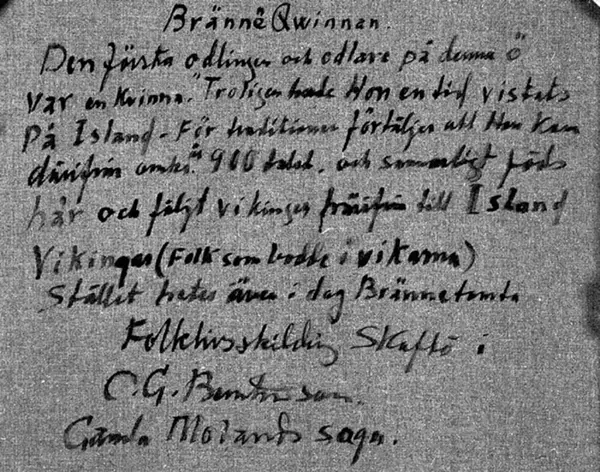 Bränne Qwinnan.
Den första odlingen och odlare på denna ö
var en kvinna. Troligen hade Hon en tid vistats
På Island - För traditionen förtäljer att Hon kom
därifrån omkr. 900 talet. och sannoligt föds
här och följt vikingar härifrån till Island
Vikingar (Folk som bodde i vikarna)
Stället hetes även i dag Brännetomta
Folklivsskildring Skaftö i
C.G.
Gamla Molands saga.